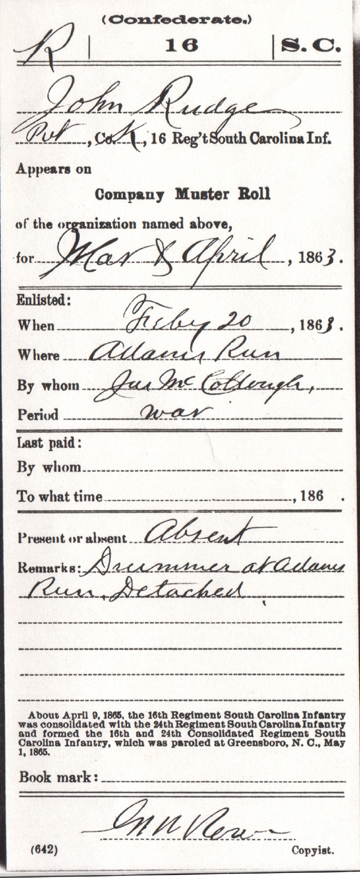 (Confederate.)
R | 16 | S.C.
John Rudge
Pvt, Co. K, 16 Reg't South Carolina Inf.
Appears on
Company Muster Roll
of the organization named above,
for Mar & April, 1863.
Enlisted:
When Feby 20, 1863.
Where Adams Run
By whom Jas McCollough,
Period war
Last paid:
By whom
To what time , 186 .
Present or absent Absent
Remarks: Drummer at Adams
Run, Detached
About April 9, 1865, the 16th Regiment South Carolina Infantry
was consolidated with the 24th Regiment South Carolina Infantry
and formed the 16th and 24th Consolidated Regiment South
Carolina Infantry, which was paroled at Greensboro, N. C., May
1, 1865.
Book mark:
(642) Copyist.